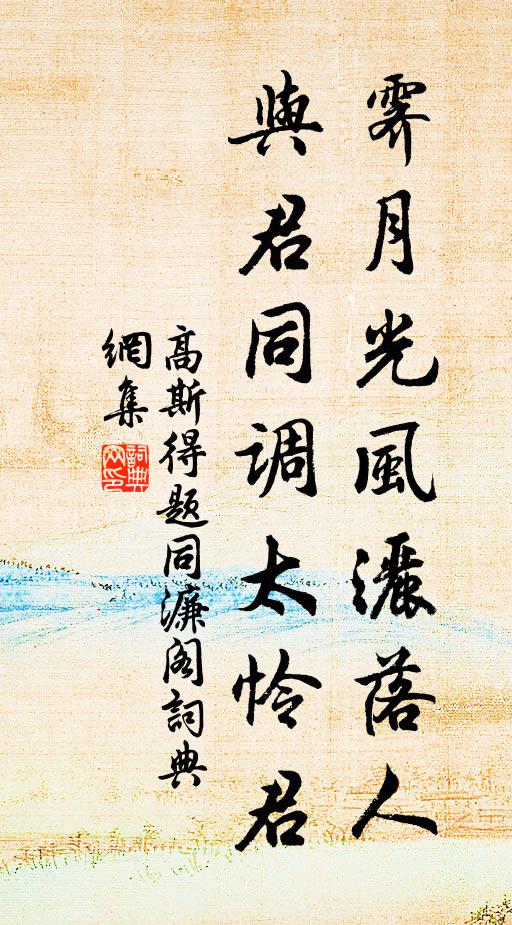 霽月光風灑落人
與君同調太怜君
高斯得題同濂阁詞典
網集
詞典
网印